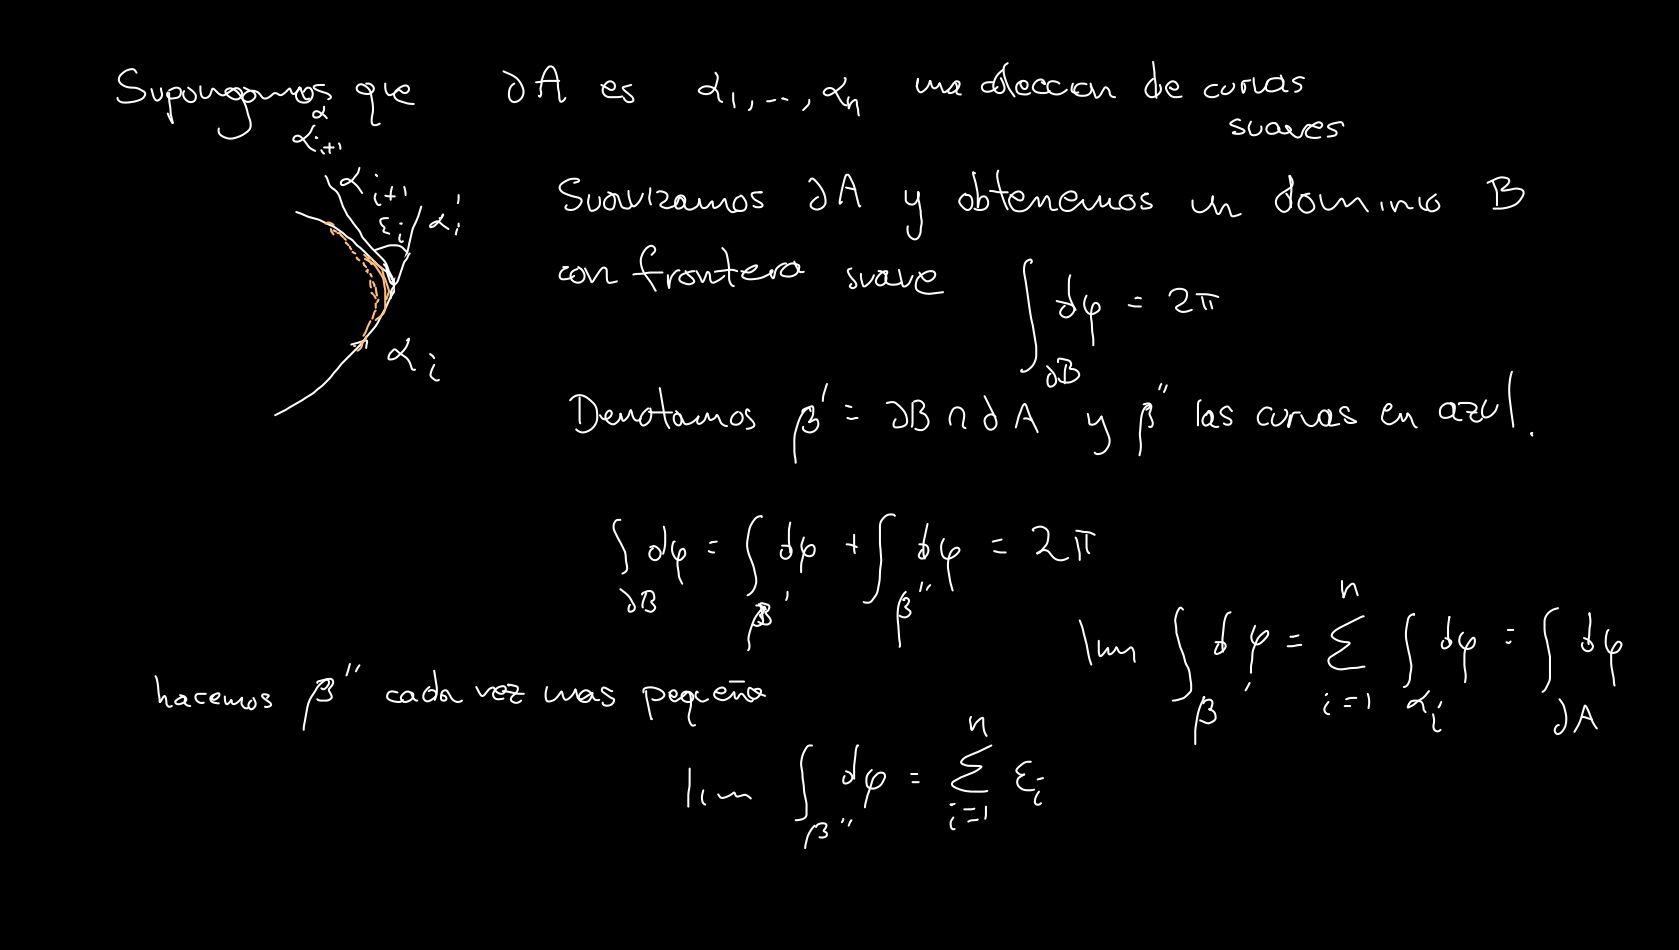 Supongamos que ∂A es α₁, ..., αₙ una coleccion de curvas
suaves
α
αᵢ₊₁
αᵢ₊₁
εᵢ
αᵢ'
αᵢ
Suavizamos ∂A y obtenemos un dominio B
con frontera suave ∫_∂B dφ = 2π
Denotamos β' = ∂B ∩ ∂A y β'' las curvas en azul.
∫_∂B dφ = ∫_β' dφ + ∫_β'' dφ = 2π
hacemos β'' cada vez mas pequeño
lim ∫_β' dφ = Σ_{i=1}^n ∫_αᵢ dφ = ∫_∂A dφ
lim ∫_β'' dφ = Σ_{i=1}^n εᵢ